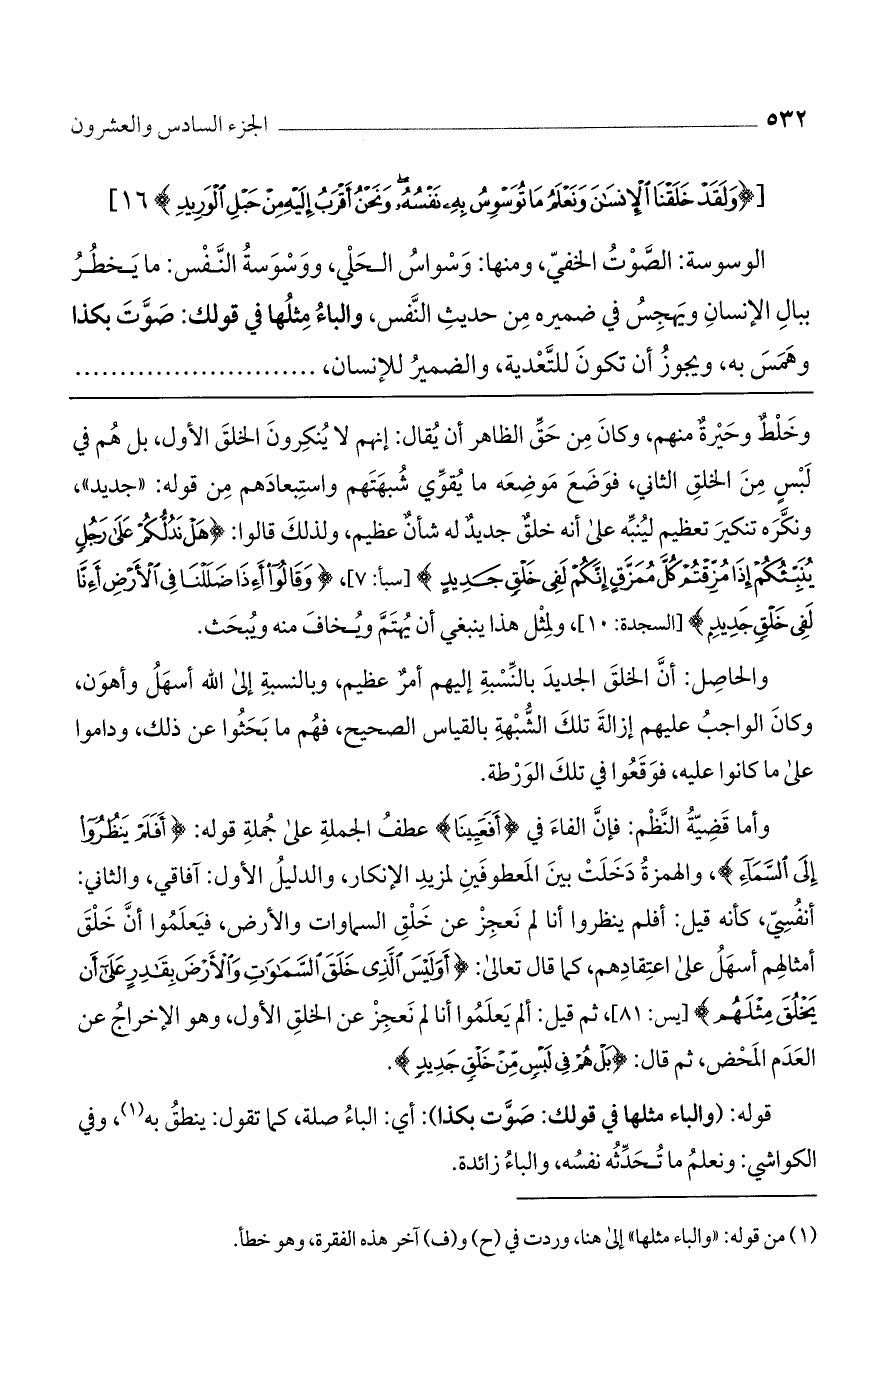 ٥٣٢ ــــــــــــــــــــ الجزء السادس والعشرون
[﴿وَلَقَدْ خَلَقْنَا ٱلْإِنسَـٰنَ وَنَعْلَمُ مَا تُوَسْوِسُ بِهِۦ نَفْسُهُۥ ۖ وَنَحْنُ أَقْرَبُ إِلَيْهِ مِنْ حَبْلِ ٱلْوَرِيدِ﴾ ١٦]
الوسوسة: الصَّوْتُ الخفيّ، ومنها: وَسْواسُ الـحَلْي، ووَسْوَسةُ النَّـفْس: ما يَـخطُـرُ
ببالِ الإنسانِ ويَهجِسُ في ضميره مِن حديثِ النَّفس، والباءُ مِثلُها في قولك: صَوَّتَ بكذا
وهَمَسَ به، ويجوزُ أن تكونَ للتَّعْدية، والضميرُ للإنسان، ...........................
وخَلْطٌ وحَيْرةٌ منهم، وكانَ مِن حَقِّ الظاهر أن يُقال: إنهم لا يُنكِرونَ الخلقَ الأول، بل هُم في
لَبْسٍ مِنَ الخلقِ الثاني، فوَضَعَ مَوضِعَه ما يُقوِّي شُبهَتَهم واستِبعادَهم مِن قوله: «جديد»،
ونكَّرَه تنكيرَ تعظيم ليُنبِّه على أنه خلقٌ جديدٌ له شأنٌ عظيم، ولذلكَ قالوا: ﴿هَلْ نَدُلُّكُمْ عَلَىٰ رَجُلٍ
يُنَبِّئُكُمْ إِذَا مُزِّقْتُمْ كُلَّ مُمَزَّقٍ إِنَّكُمْ لَفِى خَلْقٍ جَـدِيدٍ﴾ [سبأ: ٧]، ﴿وَقَالُوٓا۟ أَءِذَا ضَلَلْنَا فِى ٱلْأَرْضِ أَءِنَّا
لَفِى خَلْقٍ جَدِيدِۭ﴾ [السجدة: ١٠]، ولمِثْل هذا ينبغي أن يُهتَمَّ ويُـخافَ منه ويُبحَث.
والحاصِل: أنَّ الخلقَ الجديدَ بالنِّسْبةِ إليهم أمرٌ عظيم، وبالنسبةِ إلى الله أسهَلُ وأهوَن،
وكانَ الواجبُ عليهم إزالةَ تلكَ الشُّبْهةِ بالقياس الصحيح، فهُم ما بَحَثُوا عن ذلك، وداموا
على ما كانوا عليه، فوَقَعُوا في تلكَ الوَرْطة.
وأما قَضِيّةُ النَّظْم: فإنَّ الفاءَ في ﴿أَفَعَيِينَا﴾ عطفُ الجملةِ على جُملةِ قوله: ﴿أَفَلَمْ يَنظُرُوٓا۟
إِلَى ٱلسَّمَآءِ﴾، والهمزةُ دَخَلَتْ بينَ المَعطوفَينِ لمزيدِ الإنكار، والدليلُ الأول: آفاقي، والثاني:
أنفُسِيّ، كأنه قيل: أفلم ينظروا أنا لم نَعجِزْ عن خَلْقِ السماوات والأرض، فيَعلَمُوا أنَّ خَلْقَ
أمثالِهم أسهَلُ على اعتقادِهم، كما قال تعالى: ﴿أَوَلَيْسَ ٱلَّذِى خَلَقَ ٱلسَّمَـٰوَٰتِ وَٱلْأَرْضَ بِقَـٰدِرٍ عَلَىٰٓ أَن
يَخْلُقَ مِثْلَهُم﴾ [يس: ٨١]، ثم قيل: ألم يَعلَمُوا أنا لم نَعجِزْ عن الخلقِ الأول، وهو الإخراجُ عن
العَدَم المَحْض، ثم قال: ﴿بَلْ هُمْ فِى لَبْسٍ مِّنْ خَلْقٍ جَدِيدٍ﴾.
قوله: (والباء مثلها في قولك: صَوَّت بكذا): أي: الباءُ صلة، كما تقول: ينطقُ به(١)، وفي
الكواشي: ونعلمُ ما تُـحَدِّثُه نفسُه، والباءُ زائدة.
(١) من قوله: «والباء مثلها» إلى هنا، وردت في (ح) و(ف) آخر هذه الفقرة، وهو خطأ.